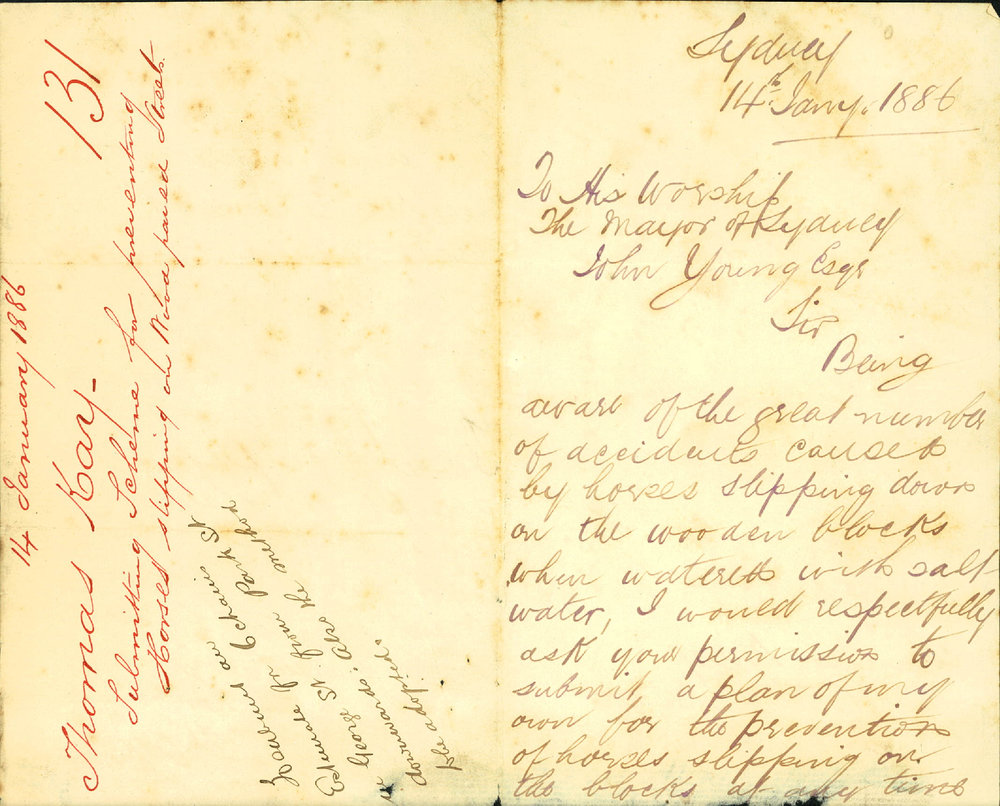 14 January 1886
Thomas Kay - 131
Submitting Scheme for preventing
Horses slipping on Wood paved Streets.
an
Estimate for Cleaning St
George St. from Park St
downwards; also the method
to be adopted
Sydney
14th Jany. 1886
To His Worship
The Mayor of Sydney
John Young Esqr
Sir
Being
aware of the great number
of accidents caused
by horses slipping down
on the wooden blocks
when watered with salt
water, I would respectfully
ask your permission to
submit a plan of my
own for the prevention
of horses slipping on
the blocks at any time